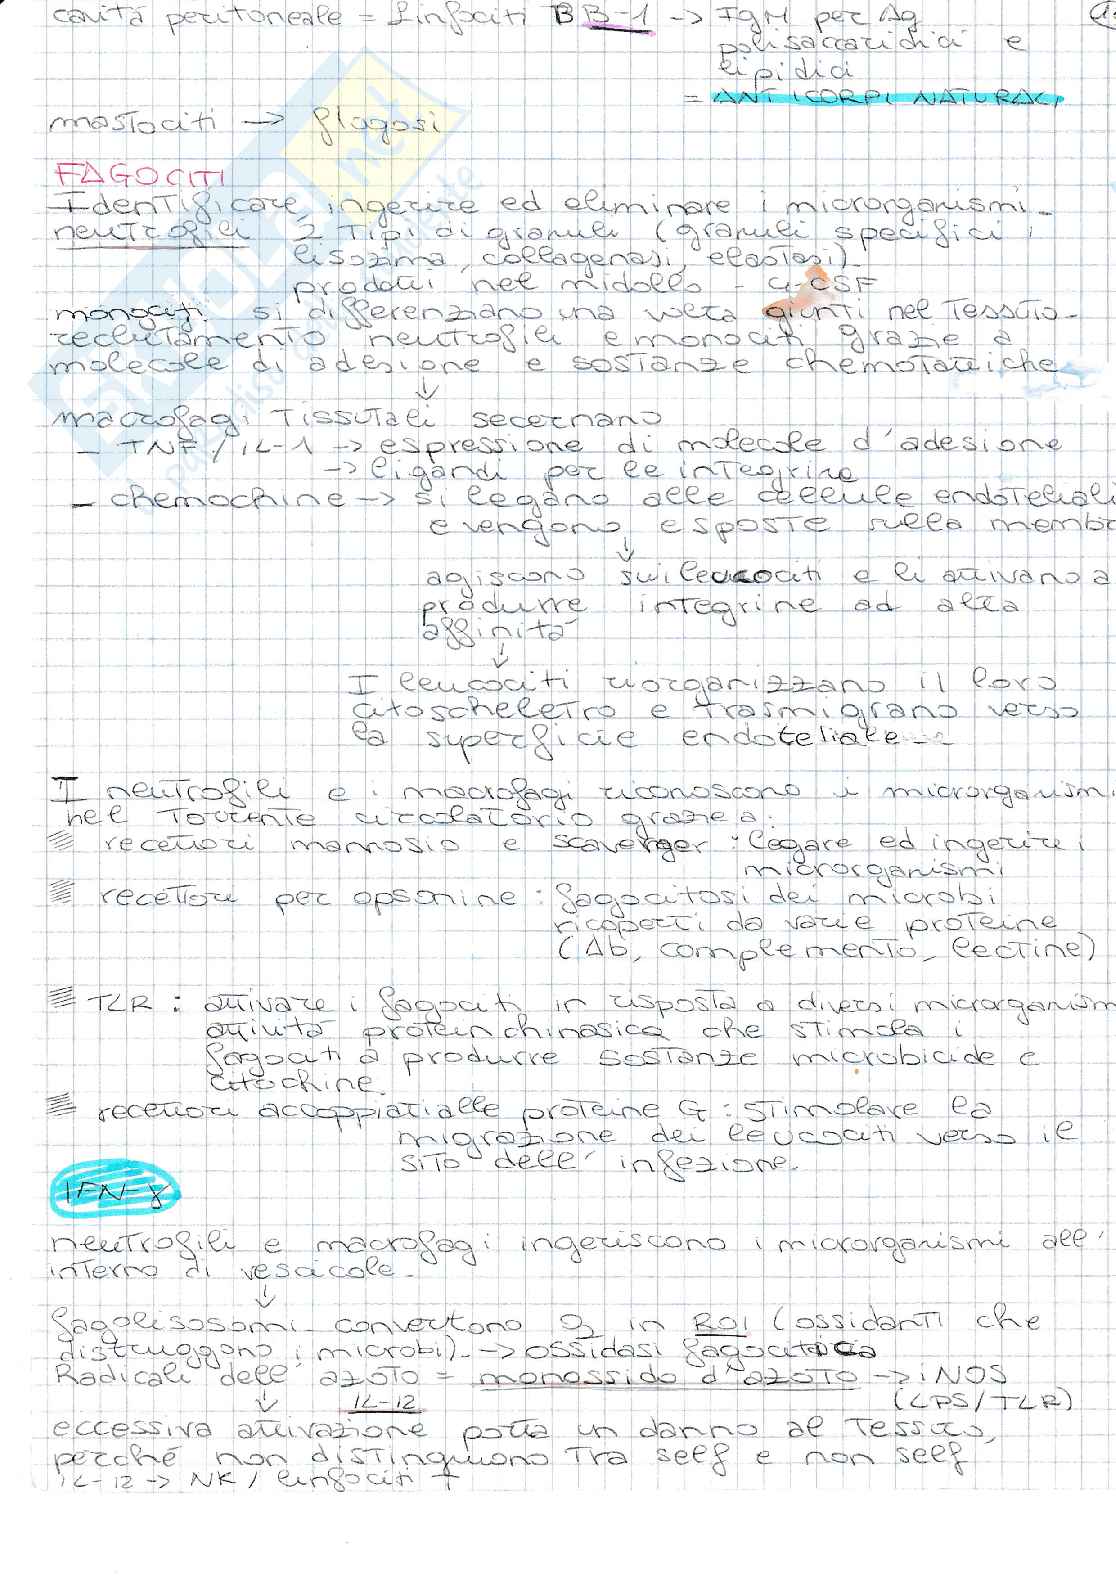 cavità peritoneale = linfociti B B-1 → IgM per Ag
polisaccaridici e
lipidici
= ANTICORPI NATURALI
mastociti → flogosi
FAGOCITI
Identificare, ingerire ed eliminare i microrganismi.
neutrofili 2 tipi di granuli (granuli specifici:
lisozima, collagenasi, elastasi).
prodotti nel midollo - G-CSF
monociti: si differenziano una volta giunti nel tessuto.
reclutamento neutrofili e monociti grazie a
molecole di adesione e sostanze chemotattiche
↓
macrofagi tissutali secernano
- TNF / IL-1 → espressione di molecole d'adesione
→ ligandi per le integrine
- chemochine → si legano alle cellule endoteliali
e vengono esposte sulla membr
↓
agiscono sui leucociti e li attivano a
produrre integrine ad alta
affinità
↓
I leucociti riorganizzano il loro
citoscheletro e trasmigrano verso
la superficie endoteliale.
I neutrofili e i macrofagi riconoscono i microrganismi
nel torrente circolatorio grazie a:
recettori mannosio e scavenger: legare ed ingerire i
microrganismi
recettori per opsonine: fagocitosi dei microbi
ricoperti da varie proteine
(Ab, complemento, lectine)
TLR: attivare i fagociti in risposta a diversi microrganism
attività proteinchinasica che stimola i
fagociti a produrre sostanze microbicide e
citochine.
recettori accoppiati alle proteine G: stimolare la
migrazione dei leucociti verso il
sito dell'infezione.
IFN-γ
neutrofili e macrofagi ingeriscono i microrganismi all'
interno di vescicole.
↓
fagolisosomi convertono O2 in ROI (ossidanti che
distruggono i microbi). → ossidasi fagocitica
Radicali dell'azoto = monossido d'azoto → iNOS
↓ IL-12 (LPS/TLR)
eccessiva attivazione porta un danno al tessuto,
perché non distinguono tra self e non self
IL-12 → NK / linfociti T